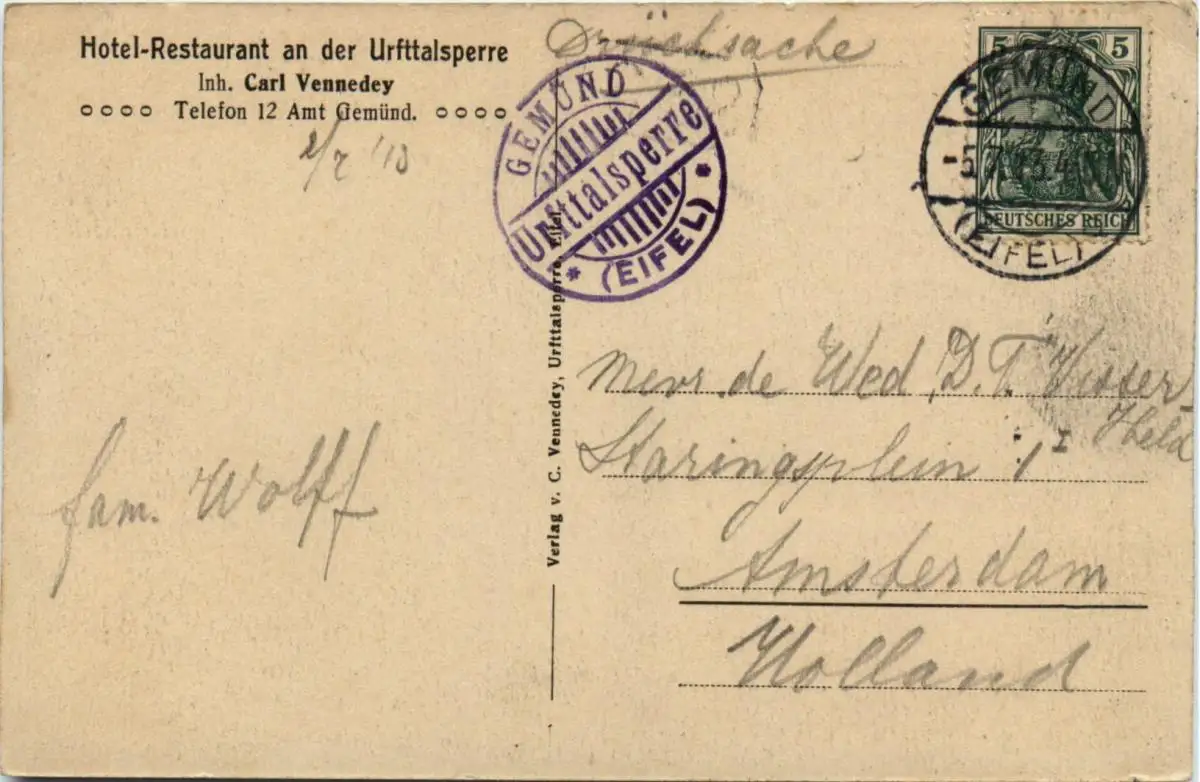 Hotel-Restaurant an der Urfttalsperre
Inh. Carl Vennedey
Telefon 12 Amt Gemünd.
2/7 '13
Drucksache
GEMÜND
Urfttalsperre
* (EIFEL) *
5 5
DEUTSCHES REICH
GEMÜND
(EIFEL)
Verlag v. C. Vennedey, Urfttalsperre, Eifel.
fam. Wolff
Mevr. de Wed. D. T. Visser
Held
Staringplein 1 I
Amsterdam
Holland